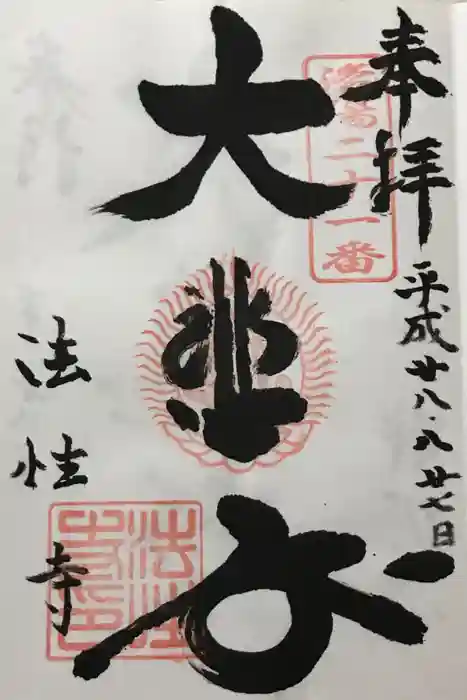 奉拝
平成廿八.八.廿七日
洛陽二十一番
大悲
法性寺
法性寺印